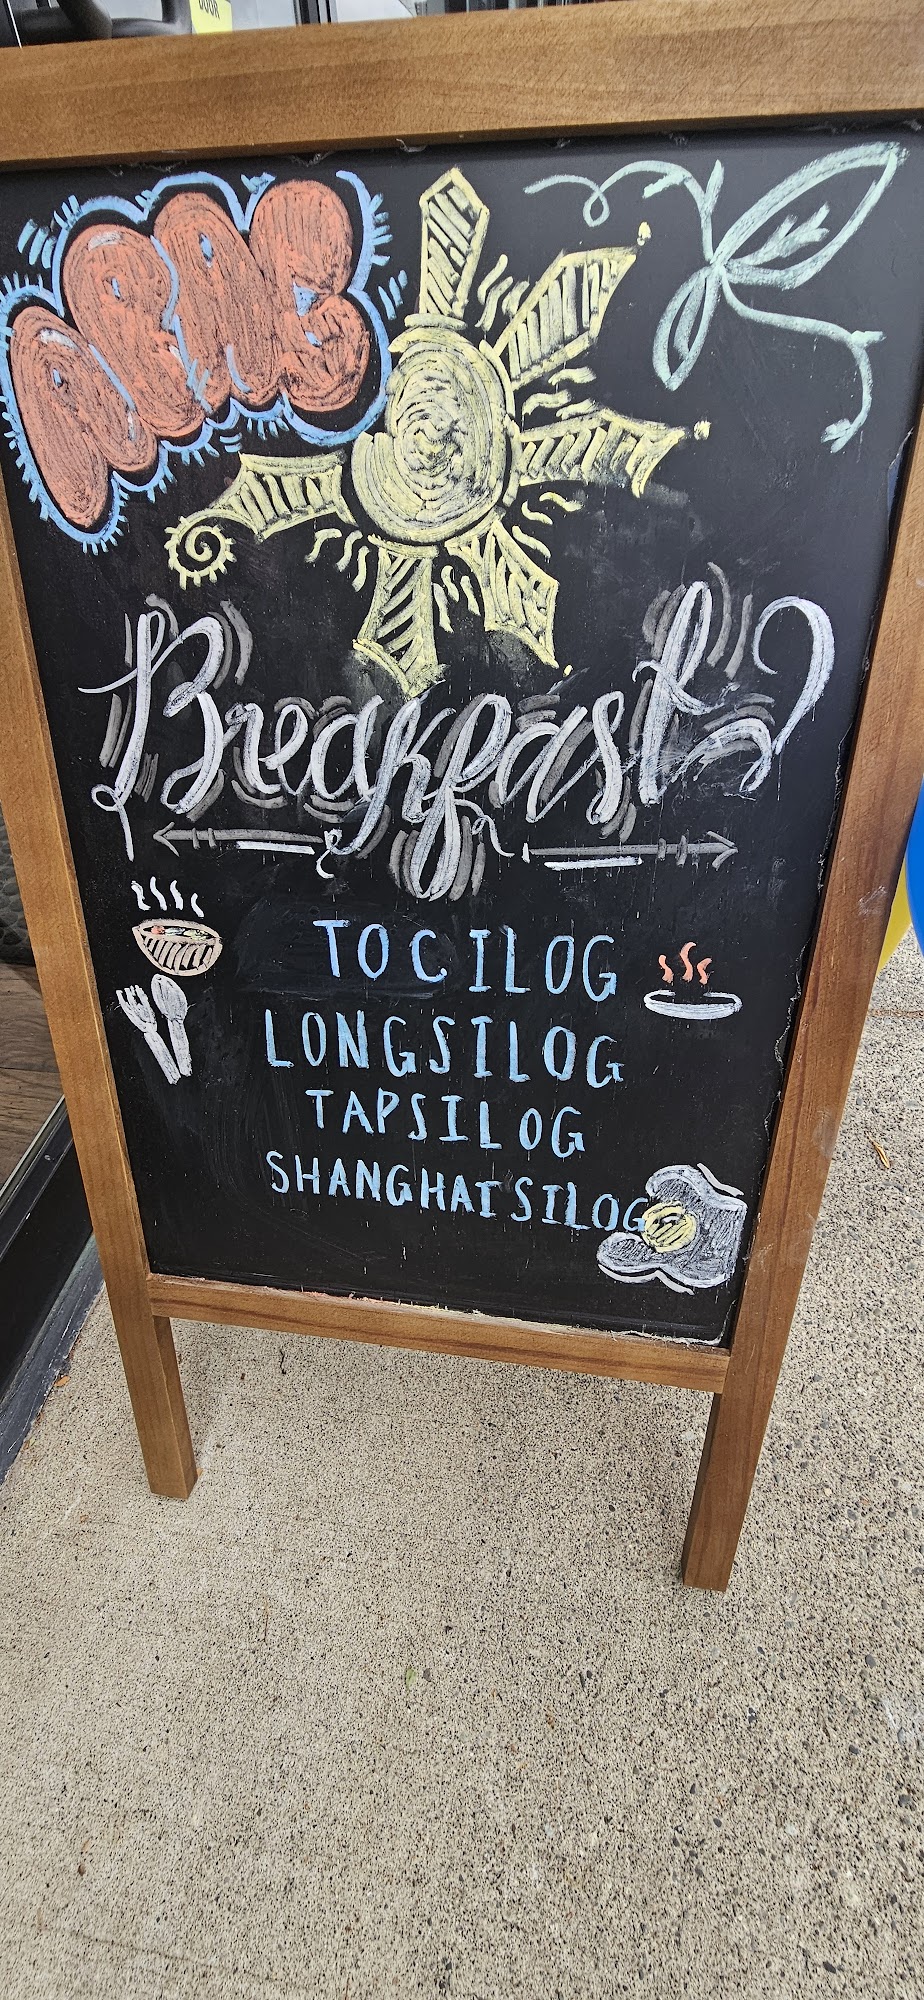 APAG
Breakfast
TOCILOG
LONGSILOG
TAPSILOG
SHANGHAISILOG